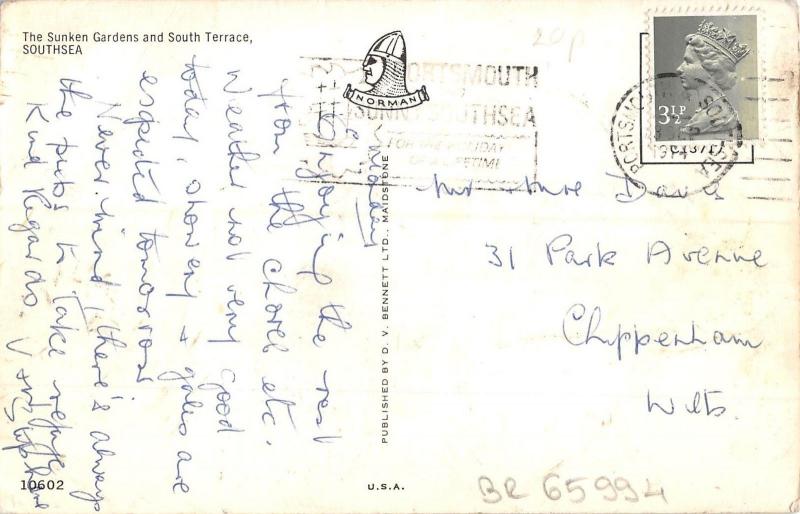 The Sunken Gardens and South Terrace,
SOUTHSEA
NORMAN
PORTSMOUTH
SUNNY SOUTHSEA
FOR THE HOLIDAY
OF A LIFETIME
20p
3½P
1974
Sunday
Enjoying the rest
from the chores etc.
Weather not very good
today, showery & gales are
expected tomorrow
Never mind, there's always
the pubs to take refuge
Kind Regards.
PUBLISHED BY D. V. BENNETT LTD., MAIDSTONE
Mr & Mrs Davis
31 Park Avenue
Chippenham
Wilts.
10602
U.S.A.
BR 65994